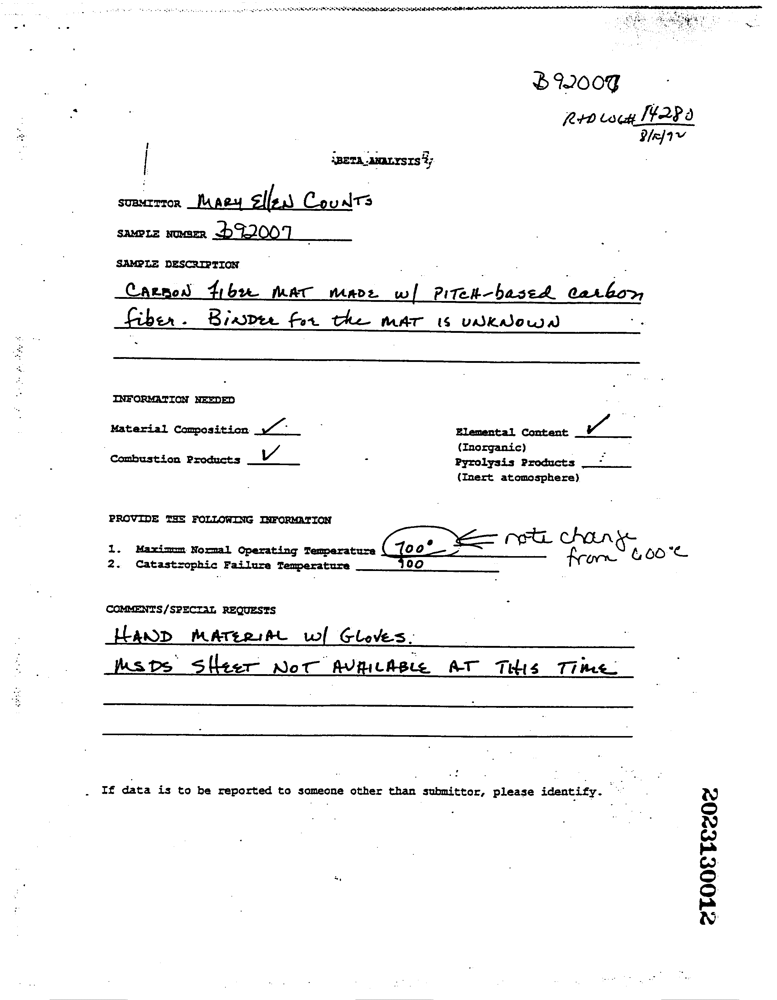 B92007
R+D LOG# 14280
BETA ANALYSIS
SUBMITTOR MARY EllEN COUNTS
SAMPLE NUMBER B92007
SAMPLE DESCRIPTION
CARBON fiber MAT MADE w/ PITCH-based carbon
fiber. BINDER for the MAT IS UNKNOWN
INFORMATION NEEDED
Material Composition ✓
Elemental Content ✓
(Inorganic)
Combustion Products ✓
Pyrolysis Products
(Inert atomosphere)
PROVIDE THE FOLLOWING INFORMATION
1. Maximum Normal Operating Temperature 700° note change
from 600°C
2. Catastrophic Failure Temperature 900
COMMENTS/SPECIAL REQUESTS
HAND MATERIAL W/ GLOVES.
MSDS SHEET NOT AVAILABLE AT THIS TIME
If data is to be reported to someone other than submittor, please identify.
2023130012